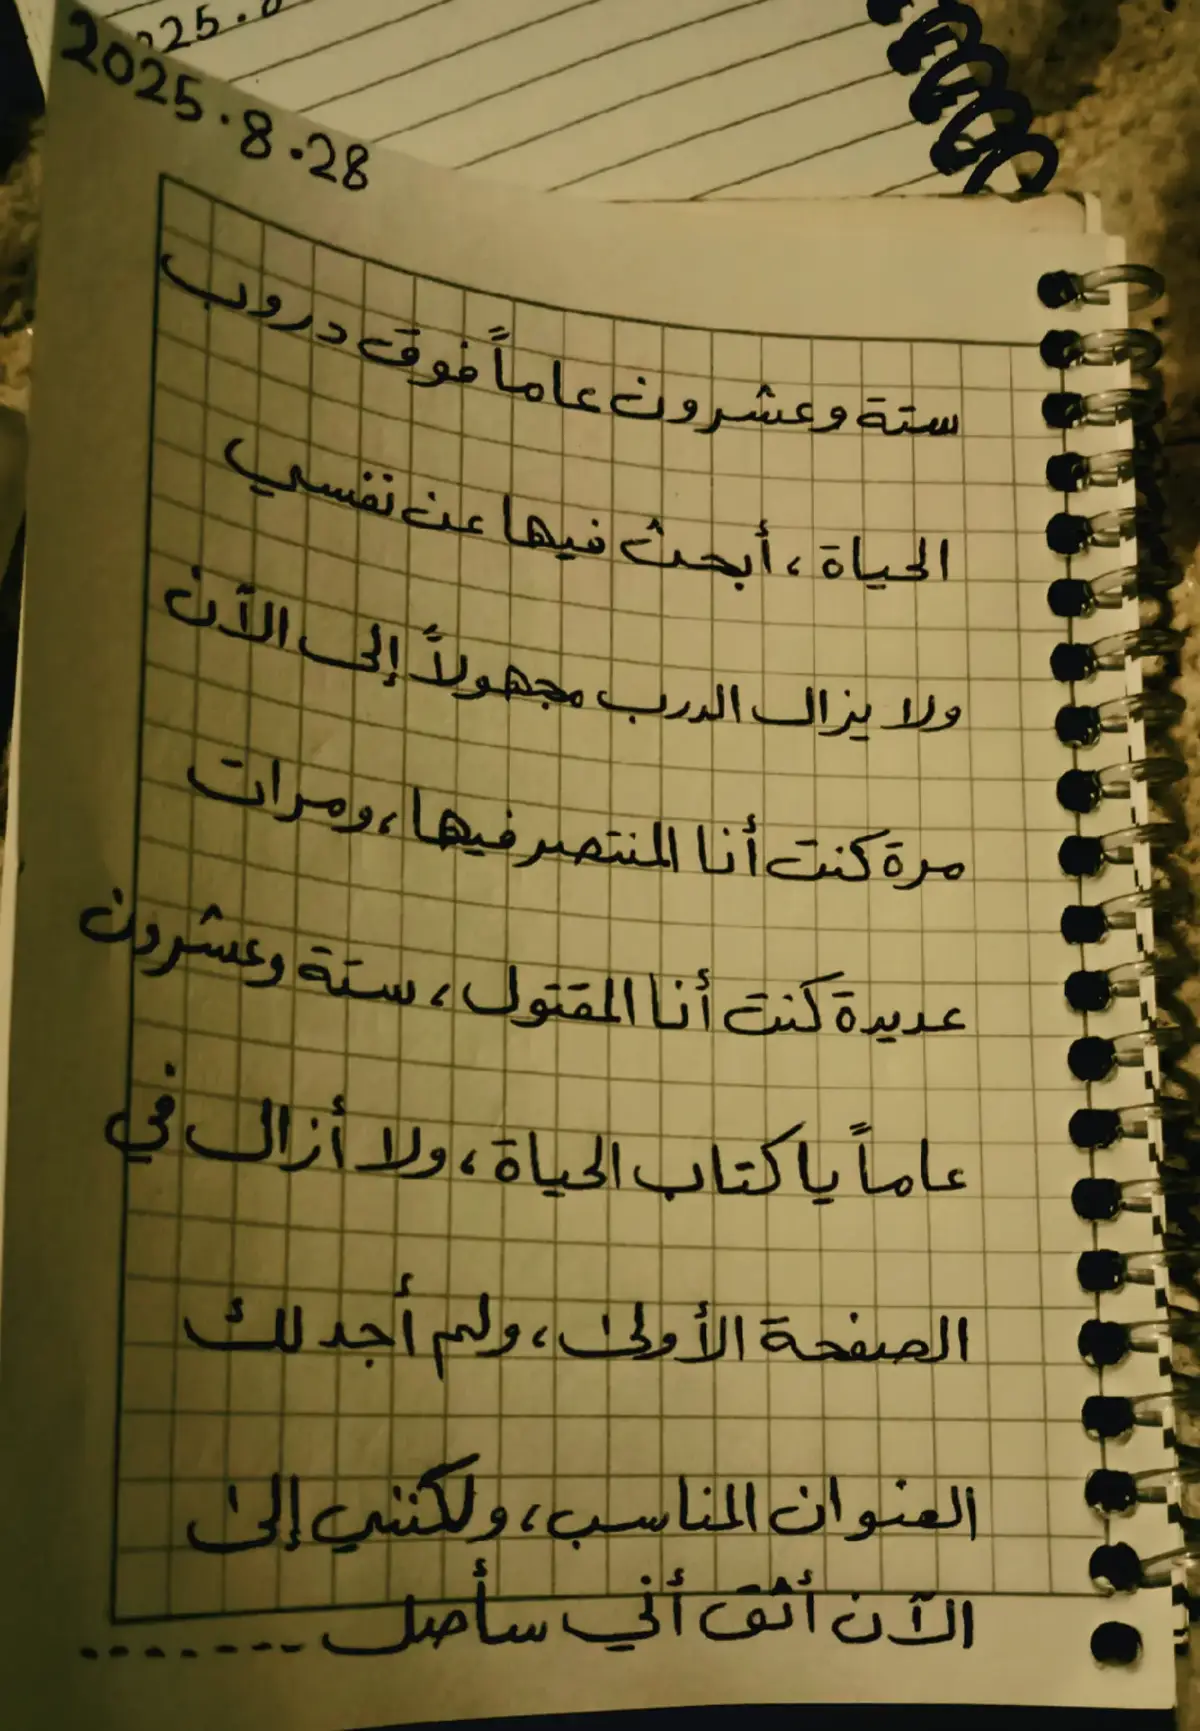 025.0
2025.8.28
ستة وعشرون عاماً فوق دروب
الحياة ، أبحث فيها عن نفسي
ولا يزال الدرب مجهولاً إلى الآن
مرة كنت أنا المنتصر فيها ، ومرات
عديدة كنت أنا المقتول ، ستة وعشرون
عاماً يا كتاب الحياة ، ولا أزال في
الصفحة الأولى ، ولم أجد لك
العنوان المناسب ، ولكنني إلى
الآن أثق أني سأصل .......